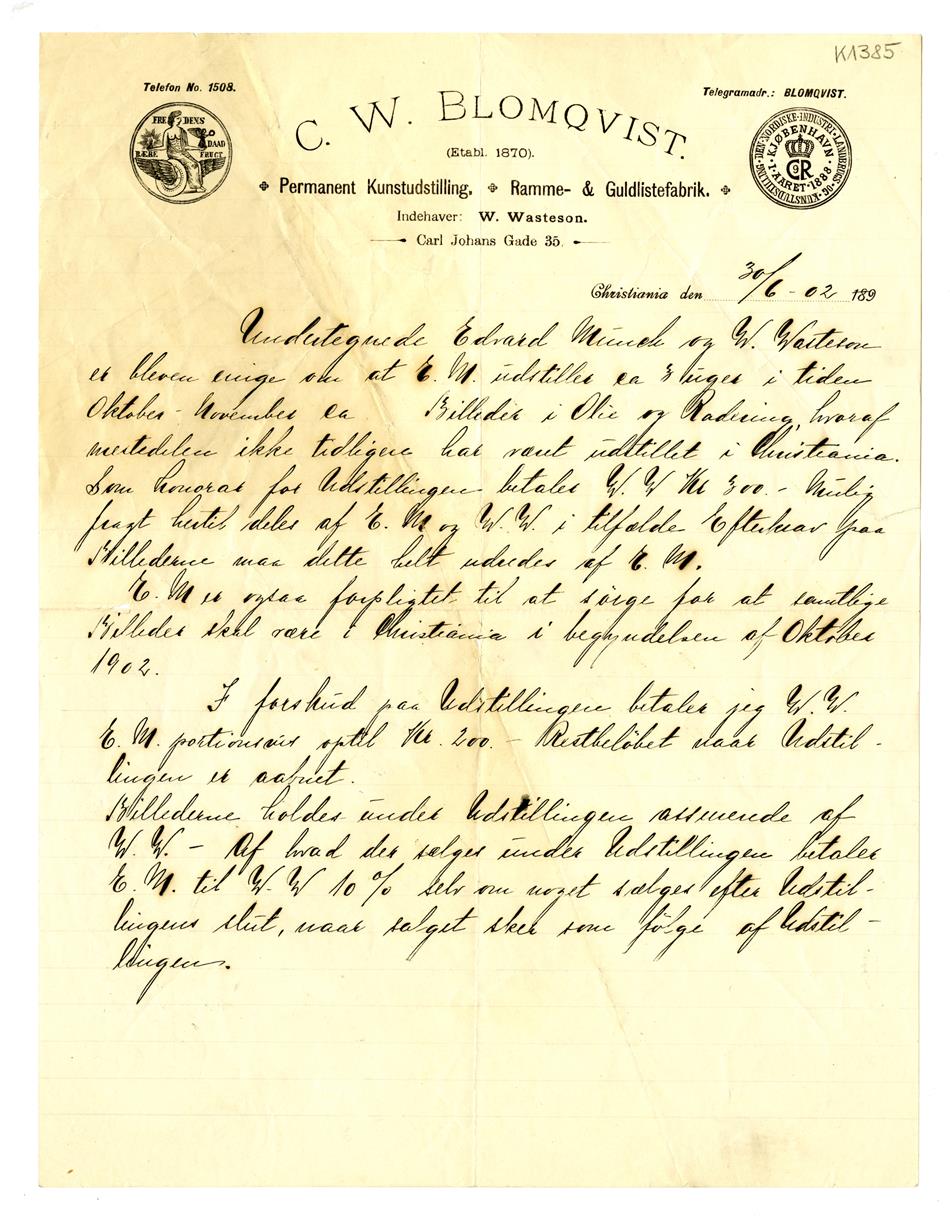 K1385
Telefon No. 1508.
Telegramadr.: BLOMQVIST.
FREDENS DAAD BÆRE FRUGT
C. W. BLOMQVIST.
DEN·NORDISKE·INDUSTRI·LANDBRUGS·OG·KUNSTUDSTILLING· KJØBENHAVN·I·AARET·1888·
(Etabl. 1870).
Permanent Kunstudstilling. Ramme- & Guldlistefabrik.
Indehaver: W. Wasteson.
Carl Johans Gade 35.
Christiania den 30/6 - 02 189
Undertegnede Edvard Munch og W. Wasteson
er bleven enige om at E. M. udstiller ca 3 uger i tiden
Oktober - November ca Billeder i Olie og Radering, hvoraf
mestedelen ikke tidligere har vært udstillet i Christiania.
Som honorar for Udstillingen betaler W. W Kr 300. - Mulig
fragt hertil deles af E. M og W. W. i tilfælde Efterkrav paa
Billederne maa dette helt udredes af E. M.
E. M er ogsaa forpligtet til at sørge for at samtlige
Billeder skal være i Christiania i begyndelsen af Oktober
1902.
I forskud paa Udstillingen betaler jeg W. W.
E. M. portionsvis optil Kr. 200. - Restbeløbet naar Udstil-
lingen er aabnet.
Billederne holdes under Udstillingen assurerede af
W. W. - Af hvad der sælges under Udstillingen betaler
E. M. til W. W 10 % selv om noget sælges efter Udstil-
lingens slut, naar salget sker som følge af Udstil-
lingen.